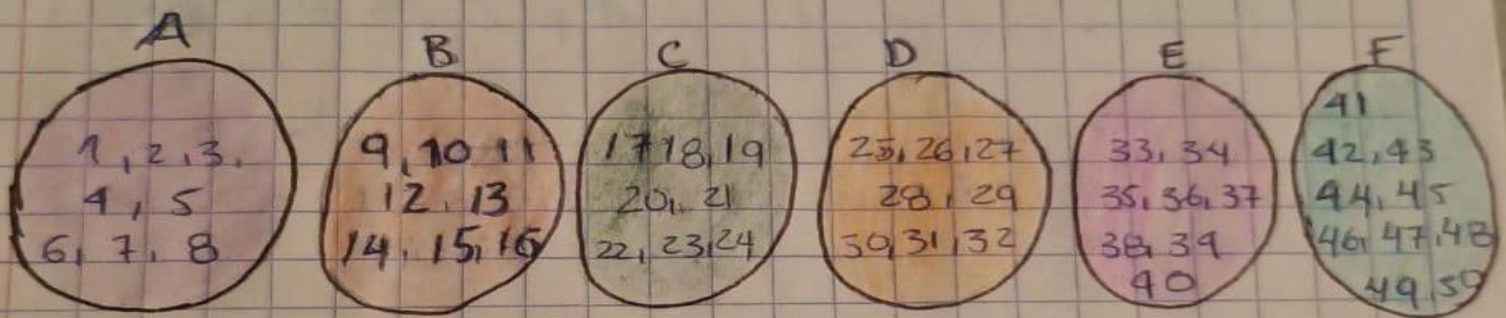 A
1, 2, 3.
4, 5
6, 7, 8
B
9, 10 11
12, 13
14, 15, 16
C
17 18, 19
20, 21
22, 23, 24
D
25, 26, 27
28, 29
30, 31, 32
E
33, 34
35, 36, 37
38, 39
40
F
41
42, 43
44, 45
46, 47, 48
49, 50